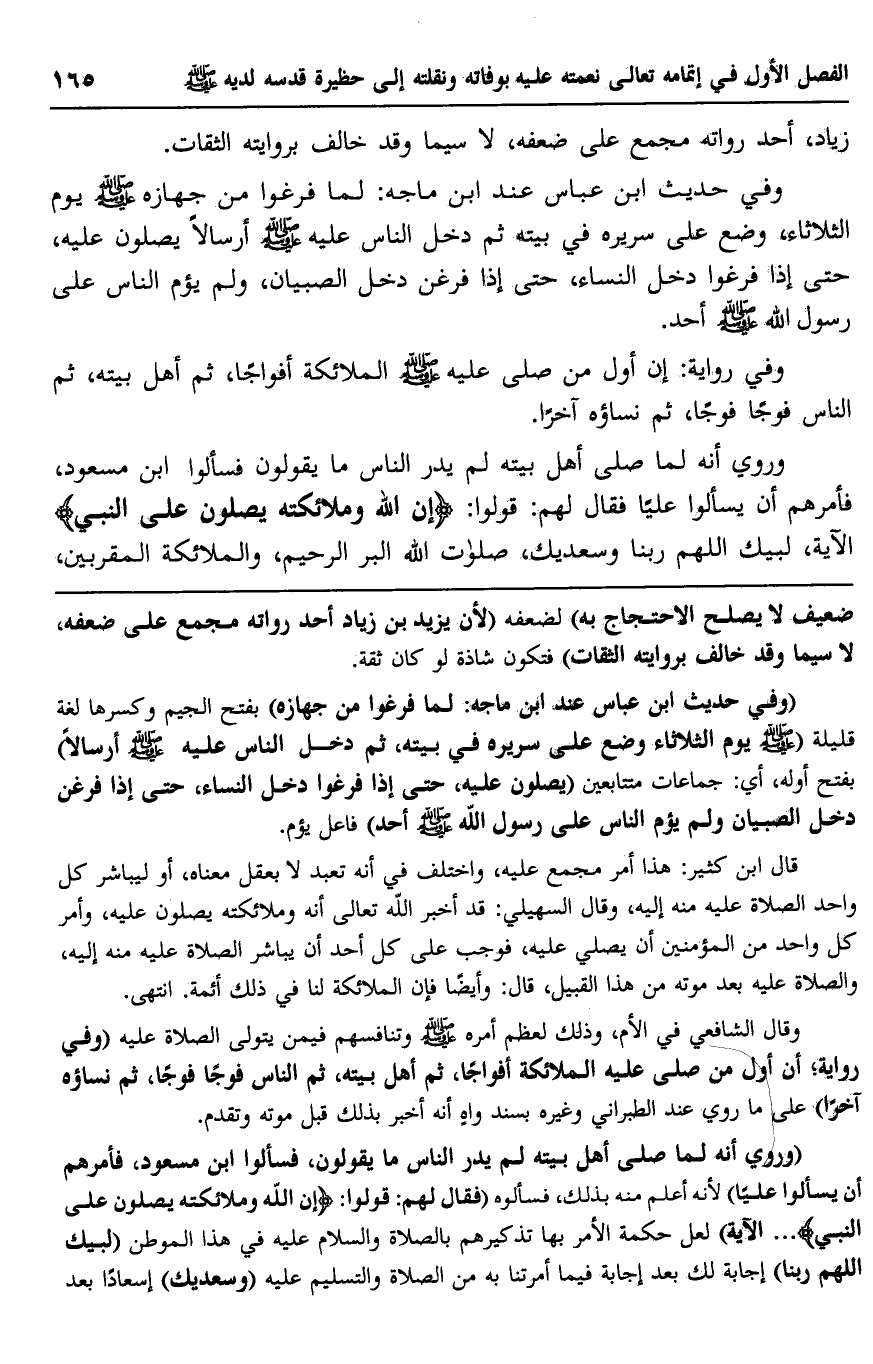 الفصل الأول في إتمامه تعالى نعمته عليه بوفاته ونقلته إلى حظيرة قدسه لديه ﷺ ١٦٥
زياد، أحد رواته مجمع على ضعفه، لا سيما وقد خالف بروايته الثقات.
وفي حديث ابن عباس عند ابن ماجه: لما فرغوا من جهازه ﷺ يوم
الثلاثاء، وضع على سريره في بيته ثم دخل الناس عليه ﷺ أرسالاً يصلون عليه،
حتى إذا فرغوا دخل النساء، حتى إذا فرغن دخل الصبيان، ولم يؤم الناس على
رسول الله ﷺ أحد.
وفي رواية: إن أول من صلى عليه ﷺ الملائكة أفواجًا، ثم أهل بيته، ثم
الناس فوجًا فوجًا، ثم نساؤه آخرًا.
وروي أنه لما صلى أهل بيته لم يدر الناس ما يقولون فسألوا ابن مسعود،
فأمرهم أن يسألوا عليًا فقال لهم: قولوا: ﴿إن الله وملائكته يصلون على النبي﴾
الآية، لبيك اللهم ربنا وسعديك، صلوٰت الله البر الرحيم، والملائكة المقربين،
ضعيف لا يصلح الاحتجاج به) لضعفه (لأن يزيد بن زياد أحد رواته مجمع على ضعفه،
لا سيما وقد خالف بروايته الثقات) فتكون شاذة لو كان ثقة.
(وفي حديث ابن عباس عند ابن ماجه: لما فرغوا من جهازه) بفتح الجيم وكسرها لغة
قليلة (ﷺ يوم الثلاثاء وضع على سريره في بيته، ثم دخل الناس عليه ﷺ أرسالاً)
بفتح أوله، أي: جماعات متتابعين (يصلون عليه، حتى إذا فرغوا دخل النساء، حتى إذا فرغن
دخل الصبيان ولم يؤم الناس على رسول الله ﷺ أحد) فاعل يؤم.
قال ابن كثير: هذا أمر مجمع عليه، واختلف في أنه تعبد لا بعقل معناه، أو ليباشر كل
واحد الصلاة عليه منه إليه، وقال السهيلي: قد أخبر الله تعالى أنه وملائكته يصلون عليه، وأمر
كل واحد من المؤمنين أن يصلي عليه، فوجب على كل أحد أن يباشر الصلاة عليه منه إليه،
والصلاة عليه بعد موته من هذا القبيل، قال: وأيضًا فإن الملائكة لنا في ذلك أئمة. انتهى.
وقال الشافعي في الأم، وذلك لعظم أمره ﷺ وتنافسهم فيمن يتولى الصلاة عليه (وفي
رواية؛ أن أول من صلى عليه الملائكة أفواجًا، ثم أهل بيته، ثم الناس فوجًا فوجًا، ثم نساؤه
آخرًا) على ما روي عند الطبراني وغيره بسند واهٍ أنه أخبر بذلك قبل موته وتقدم.
(وروي أنه لما صلى أهل بيته لم يدر الناس ما يقولون، فسألوا ابن مسعود، فأمرهم
أن يسألوا عليًا) لأنه أعلم منه بذلك، فسألوه (فقال لهم: قولوا: ﴿إن الله وملائكته يصلون على
النبي﴾... الآية) لعل حكمة الأمر بها تذكيرهم بالصلاة والسلام عليه في هذا الموطن (لبيك
اللهم ربنا) إجابة لك بعد إجابة فيما أمرتنا به من الصلاة والتسليم عليه (وسعديك) إسعادًا بعد